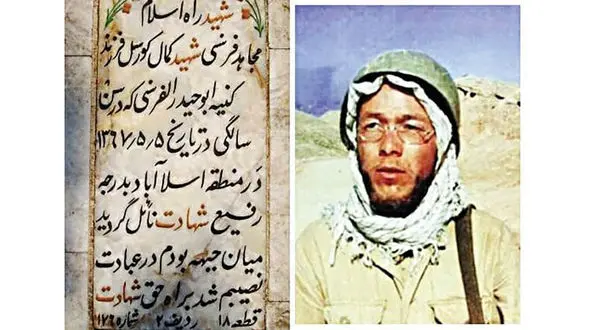 شهید راه اسلام
مجاهد فرنسی شهید کمال کورسل فرزند
کنیه ابوحیدر الفرنسی که در سن
سالگی در تاریخ ۱۳۶۷٫۵٫۵
در منطقه اسلام آباد بدرجه
رفیع شهادت نائل گردید
میان جبهه بودم در عبادت
نصیبم شد براه حق شهادت
قطعه ۱۸ ردیف ۲ شماره